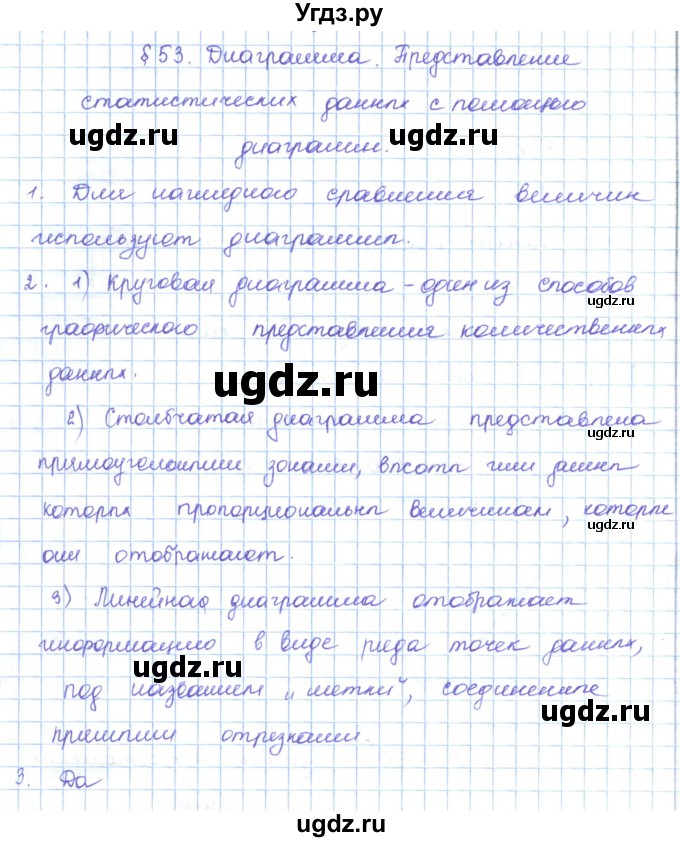 Угдз.ру
§ 53. Диаграмма. Представление
статистических данных с помощью
ugdz.ru ugdz.ru
диаграмм.
1. Для наглядного сравнения величин
используют диаграммы.
2. 1) Круговая диаграмма - один из способов
ugdz.ru
графического представления количественных
данных.
ugdz.ru
2) Столбчатая диаграмма представлена
ugdz.ru
прямоугольными зонами, высоты или длины
которых пропорциональны величинам, которые
ugdz.ru
они отображают.
3) Линейная диаграмма отображает
информацию в виде ряда точек данных,
ugdz.ru
под названием „метки", соединенные
ugdz.ru
прямыми отрезками.
3. Да
ugdz.ru